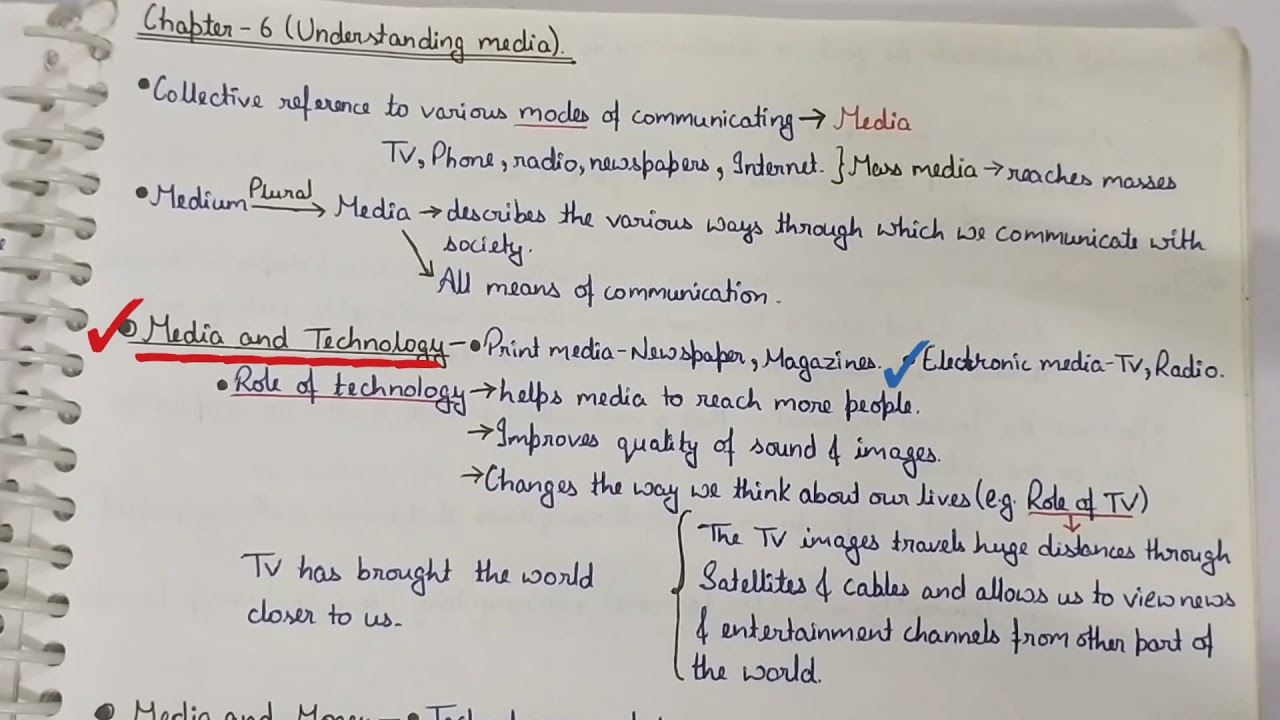 Chapter - 6 (Understanding media).
• Collective reference to various modes of communicating → Media
TV, Phone, radio, newspapers, Internet. } Mass media → reaches masses
• Medium Plural → Media → describes the various ways through which we communicate with
society.
All means of communication.
• Media and Technology - • Print media - Newspaper, Magazines. • Electronic media - TV, Radio.
• Role of technology → helps media to reach more people.
→ Improves quality of sound & images.
→ Changes the way we think about our lives (e.g. Role of TV)
The TV images travels huge distances through
Satellites & cables and allows us to view news
& entertainment channels from other part of
the world.
TV has brought the world
closer to us.
• Media and